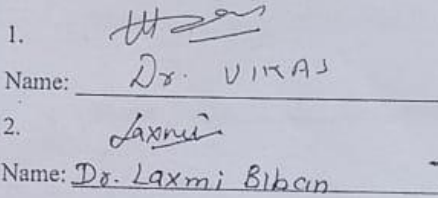 1.
Name: Dr. VIKAS
2. Laxmi
Name: Dr. Laxmi Biban